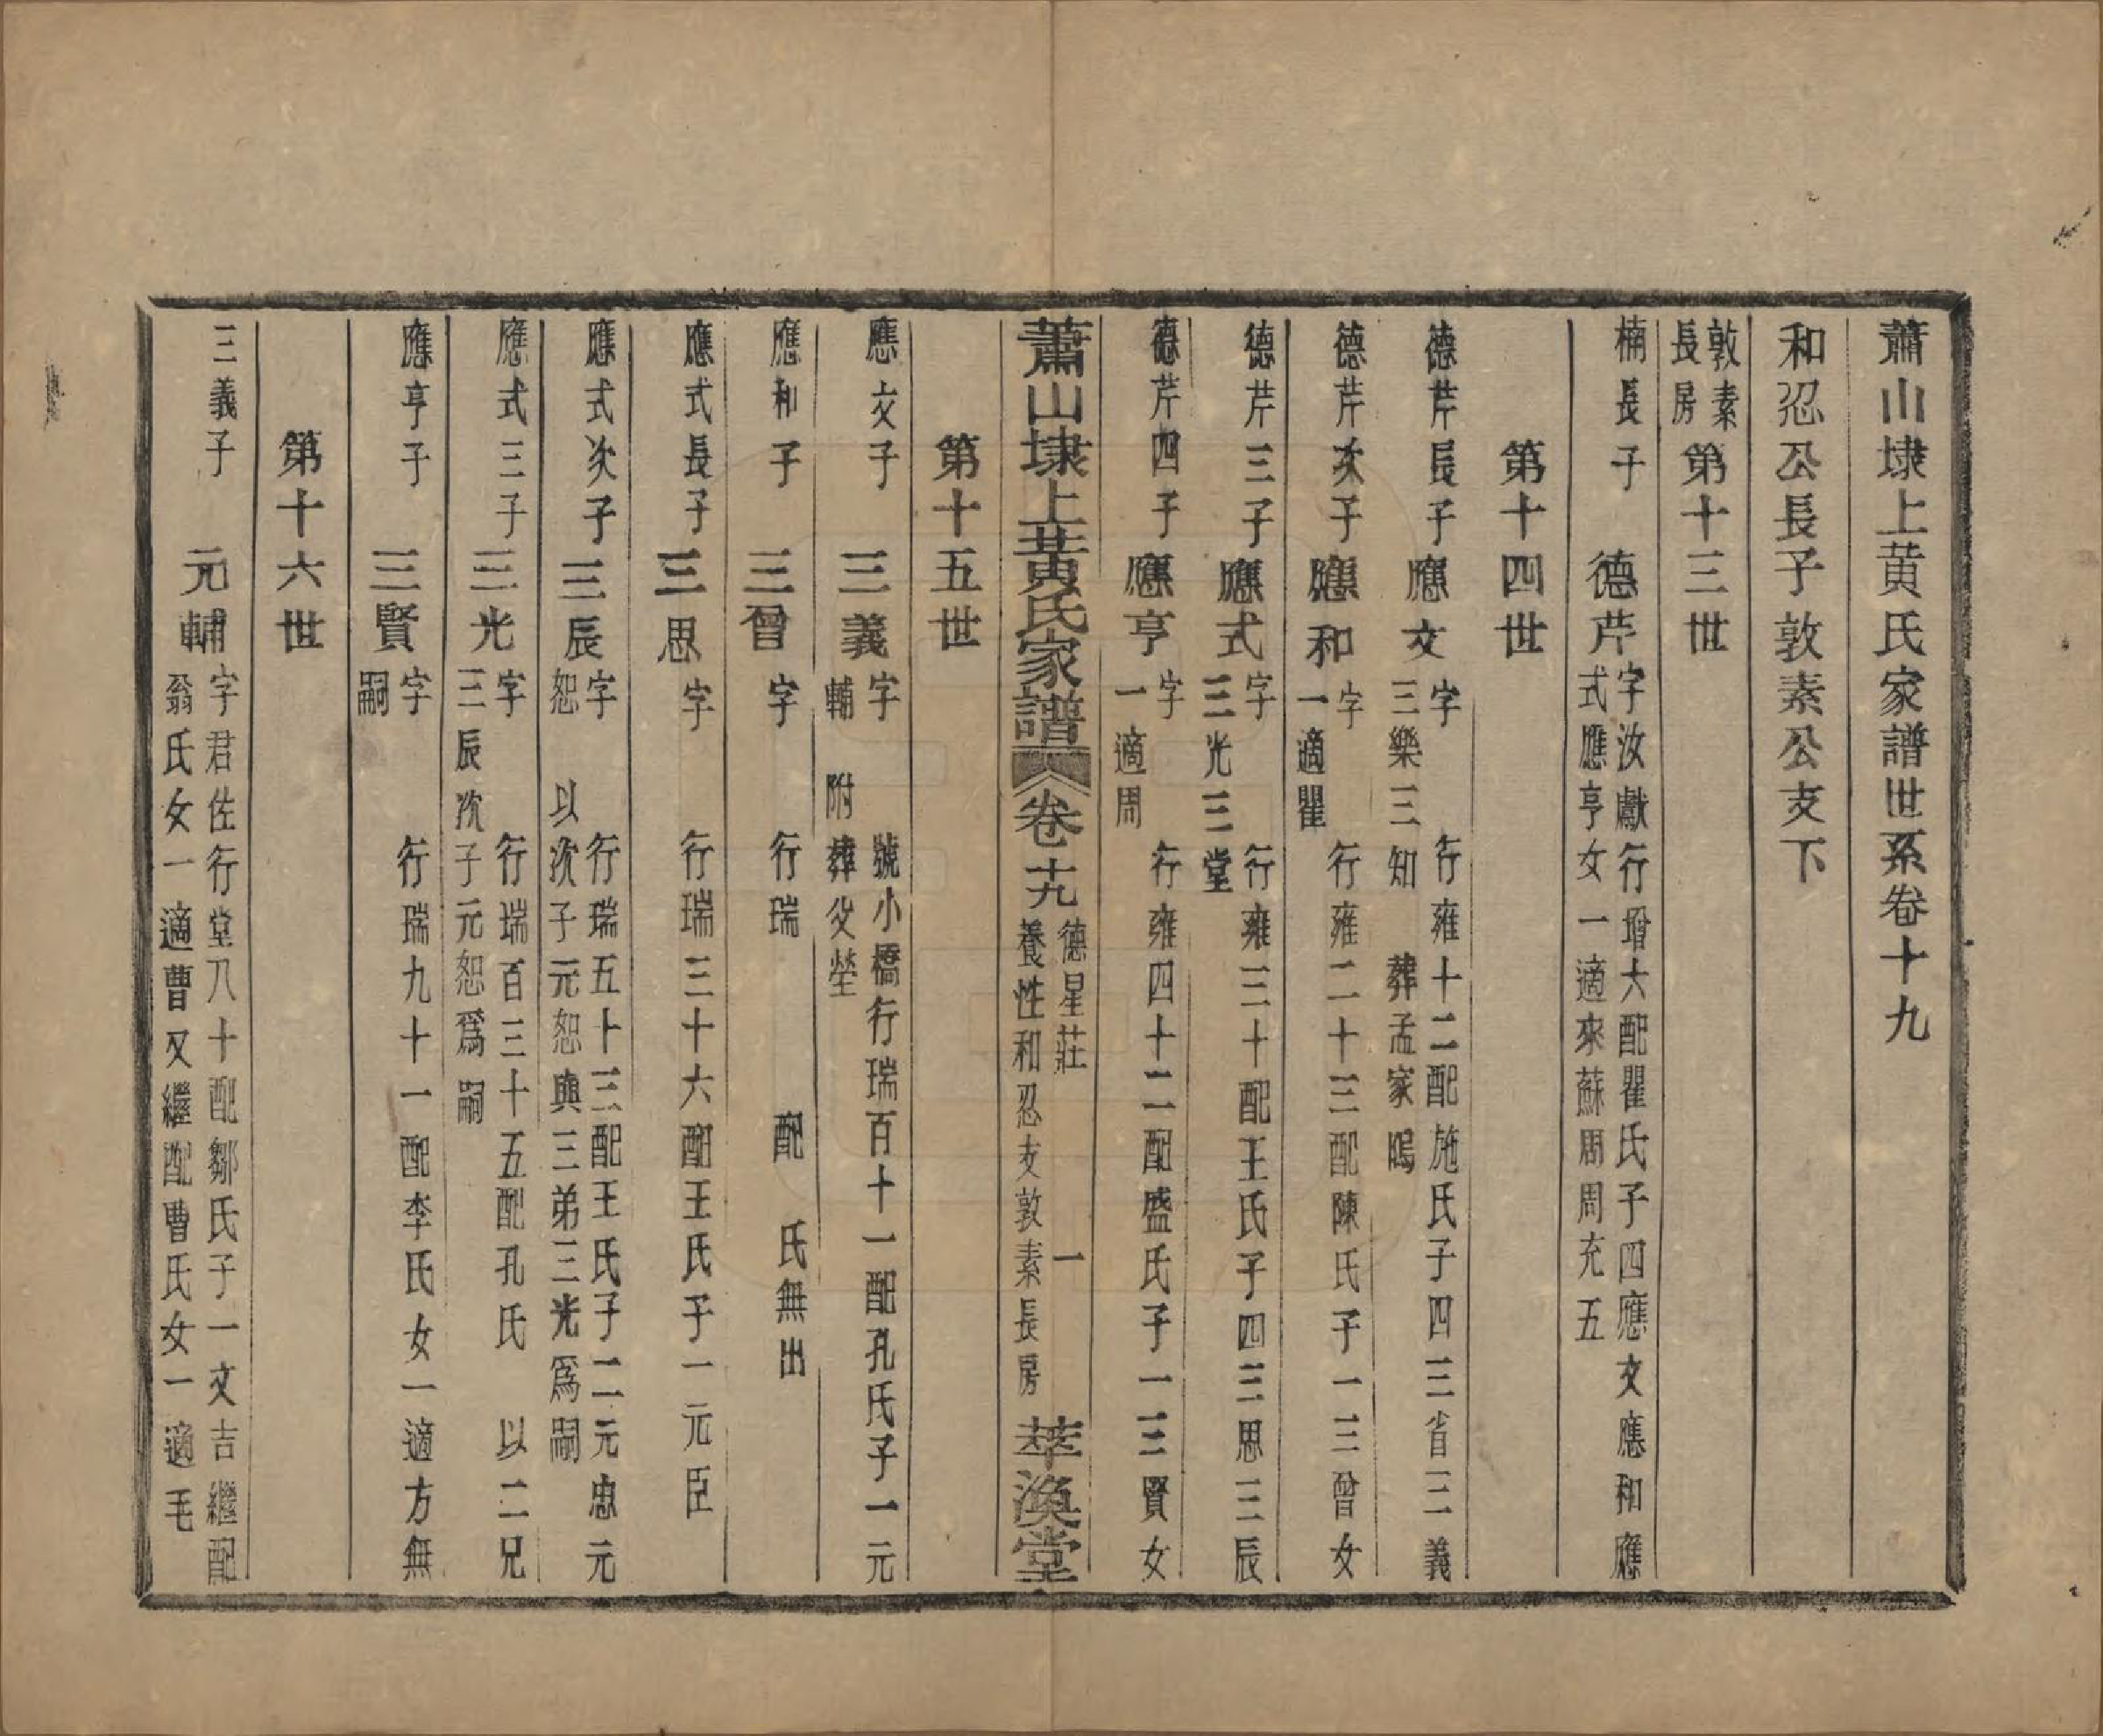 蕭山埭上黃氏家譜世系卷十九
和忍公長子敦素公支下
敦素長房　第十三世
楠長子　德芹　字汝獻行增六配瞿氏子四應文應和應
式應亨女一適來蘇周周充五
第十四世
德芹長子　應文　字　行雍十二配施氏子四三省三義
三樂三知　葬孟家鳴
德芹次子　應和　字　行雍二十三配陳氏子一三曾女
一適瞿
德芹三子　應式　字　行雍三十配王氏子四三思三辰
三光三堂
德芹四子　應亨　字　行雍四十二配盛氏子一三賢女
一適周
蕭山埭上黃氏家譜　卷十九　德星莊
養性和忍支敦素長房　一　萃渙堂
第十五世
應文子　三義　字　號小橋行瑞百十一配孔氏子一元
輔　附葬父塋
應和子　三曾　字　行瑞　配　氏無出
應式長子　三思　字　行瑞三十六配王氏子一元臣
應式次子　三辰　字　行瑞五十三配王氏子二元忠元
恕　以次子元恕與三弟三光爲嗣
應式三子　三光　字　行瑞百三十五配孔氏　以二兄
三辰次子元恕爲嗣
應亨子　三賢　字　行瑞九十一配李氏女一適方無
嗣
第十六世
三義子　元輔　字君佐行堂八十配鄒氏子一文吉繼配
翁氏女一適曹又繼配曹氏女一適毛